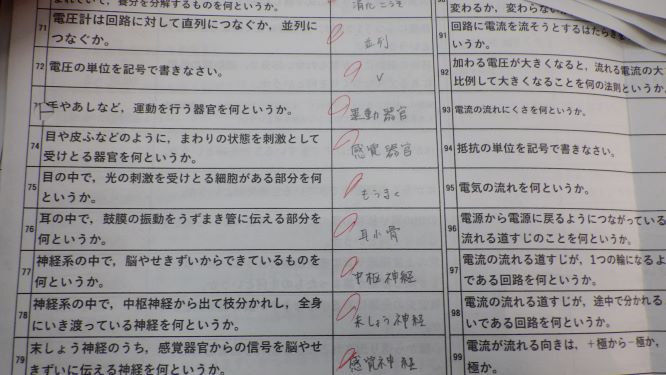 養分を分解するものを何というか。
消化こうそ
71 電圧計は回路に対して直列につなぐか，並列
につなぐか。
並列
72 電圧の単位を記号で書きなさい。
V
手やあしなど，運動を行う器官を何というか。
運動器官
74 目や皮ふなどのように，まわりの状態を刺激として
受けとる器官を何というか。
感覚器官
75 目の中で，光の刺激を受けとる細胞がある部分を何
というか。
もうまく
76 耳の中で，鼓膜の振動をうずまき管に伝える部分を
何というか。
耳小骨
77 神経系の中で，脳やせきずいからできているものを
何というか。
中枢神経
78 神経系の中で，中枢神経から出て枝分かれし，全身
にいき渡っている神経を何というか。
末しょう神経
79 末しょう神経のうち，感覚器官からの信号を脳やせ
きずいに伝える神経を何というか。
感覚神経
変わるか，変わらない
91 回路に電流を流そうとするはたらき
いうか。
92 加わる電圧が大きくなると，流れる電流の大
比例して大きくなることを何の法則というか。
93 電流の流れにくさを何というか。
94 抵抗の単位を記号で書きなさい。
95 電気の流れを何というか。
96 電源から電源に戻るようにつながっている
流れる道すじのことを何というか。
97 電流の流れる道すじが，1つの輪になるよ
である回路を何というか。
98 電流の流れる道すじが，途中で分かれる
いである回路を何というか。
99 電流が流れる向きは，＋極から－極か，